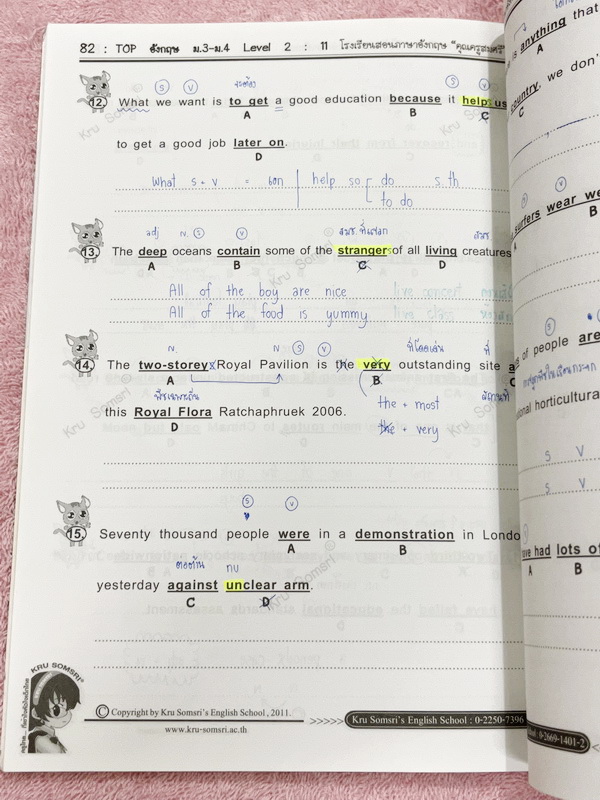 82 : TOP อังกฤษ ม.3-ม.4 Level 2 : 11 โรงเรียนสอนภาษาอังกฤษ "คุณครูสมศรี"
S V S V
12. What we want is to get a good education because it helps us
A B C
to get a good job later on.
D
What S + V = ของ help so do s.th
to do
adj N. S V
13. The deep oceans contain some of the strangers of all living creatures
A B C D
All of the boy are nice
All of the food is yummy
N. N S V
14. The two-storey Royal Pavilion is the very outstanding site a
A B C
the + most
the + very
this Royal Flora Ratchaphruek 2006.
D
S V
15. Seventy thousand people were in a demonstration in Londo
A B
ต่อต้าน กับ
yesterday against unclear arm.
C D
KRU SOMSRI
© Copyright by Kru Somsri's English School, 2011.
www.kru-somsri.ac.th
>>>>> Kru Somsri's English School : 0-2250-7396
is anything that
A
country, we don'
C
V
surfers wear we
A
S
s of people are
A
ional horticultura
S V
S V
ave had lots of
A B
: 0-2669-1401-2